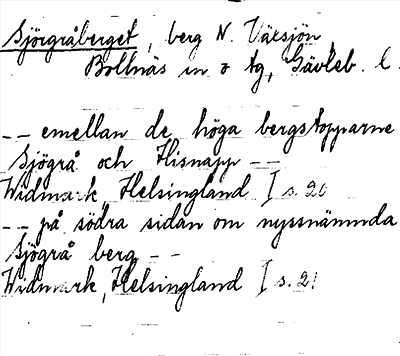 Sjögråberget, berg N. Växsjön,
Bollnäs sn o tg, Gävleb. l.
-- emellan de höga bergstopparne
Sjögrå och Hisnapp --
Widmark Helsingland I s. 20
-- på södra sidan om nyssnämnda
Sjögrå berg --
Widmark, Helsingland I s. 21